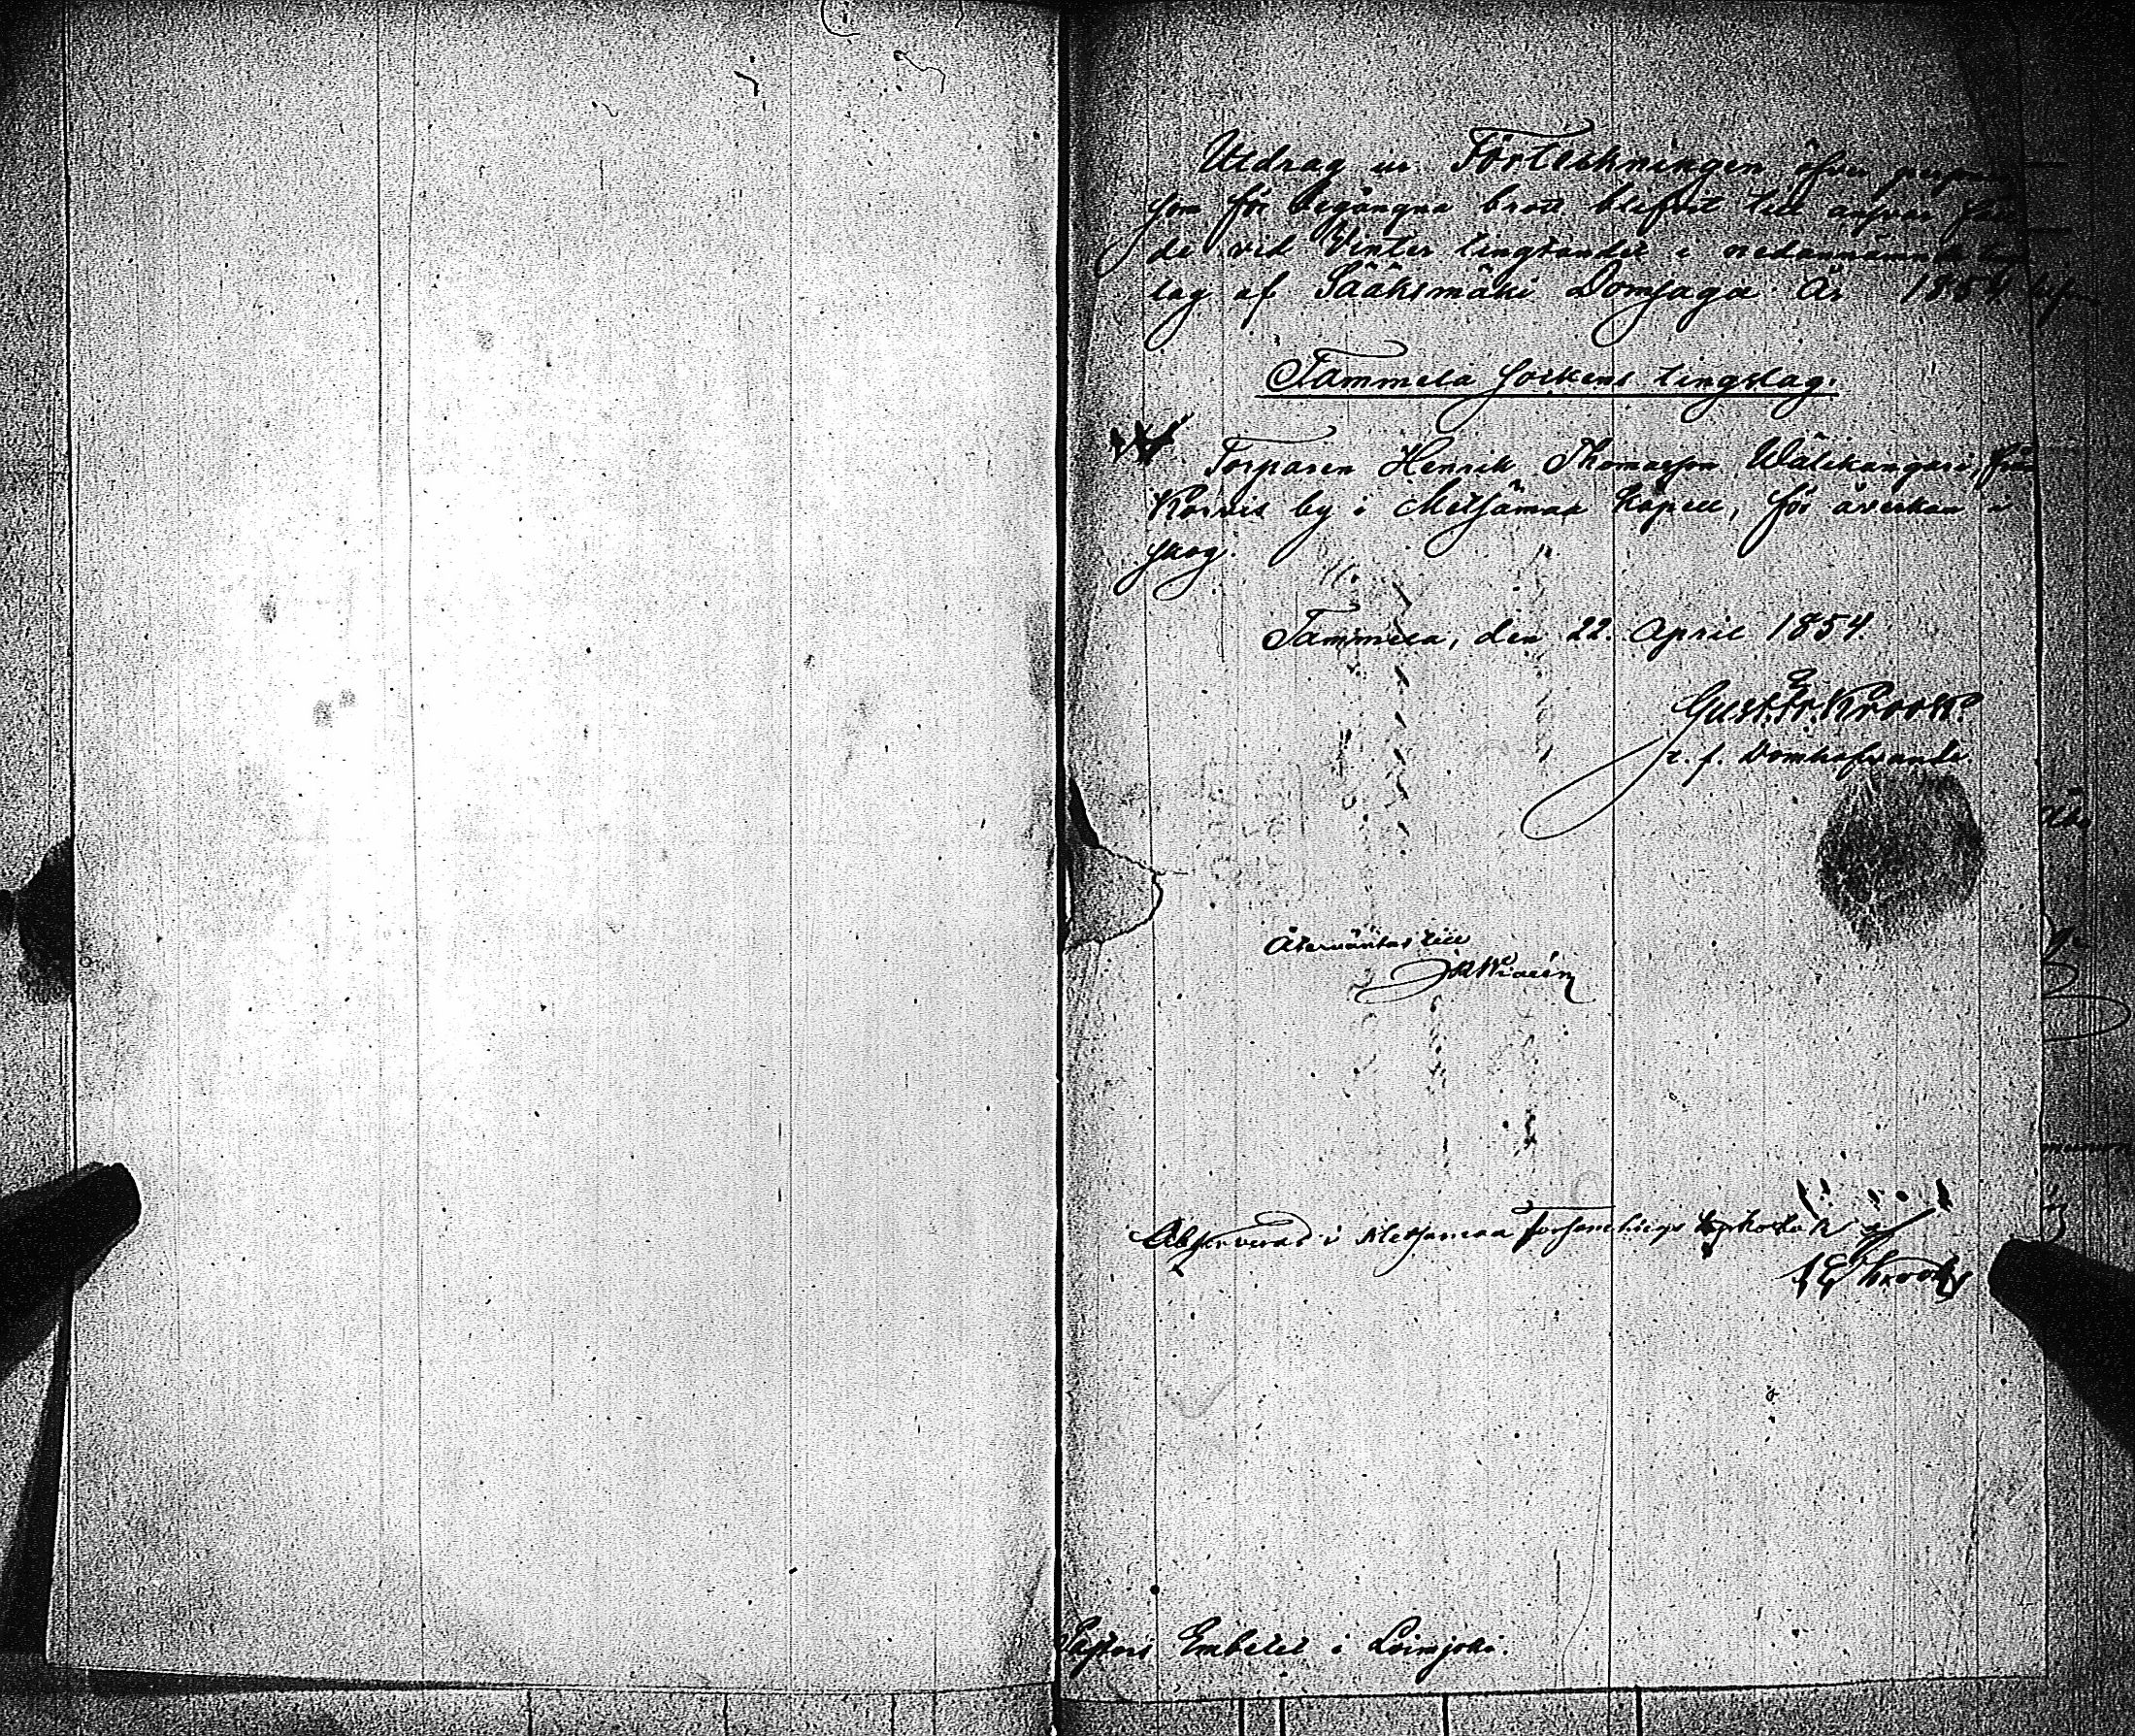 Utdrag ur Förteckningen öfver
som för begångna brott blifvit till ansvar
de vid Vinter tingtandet i nedannämnde
lag af Sääksmäki Domsaga År 1854
Tammela Sockens tingslag.
Torparen Henrik Thomasson Wälikangari, från
Korvis by i Metsämaa Kapell, för åverkan å
skog.
Tammela, den 22. April 1854.
Gust. Fr. Krook
e. f. Domhafvande
Återväntas till
Observeras i Metsämaa
Krook
Pastors Embetet i Loimjoki.